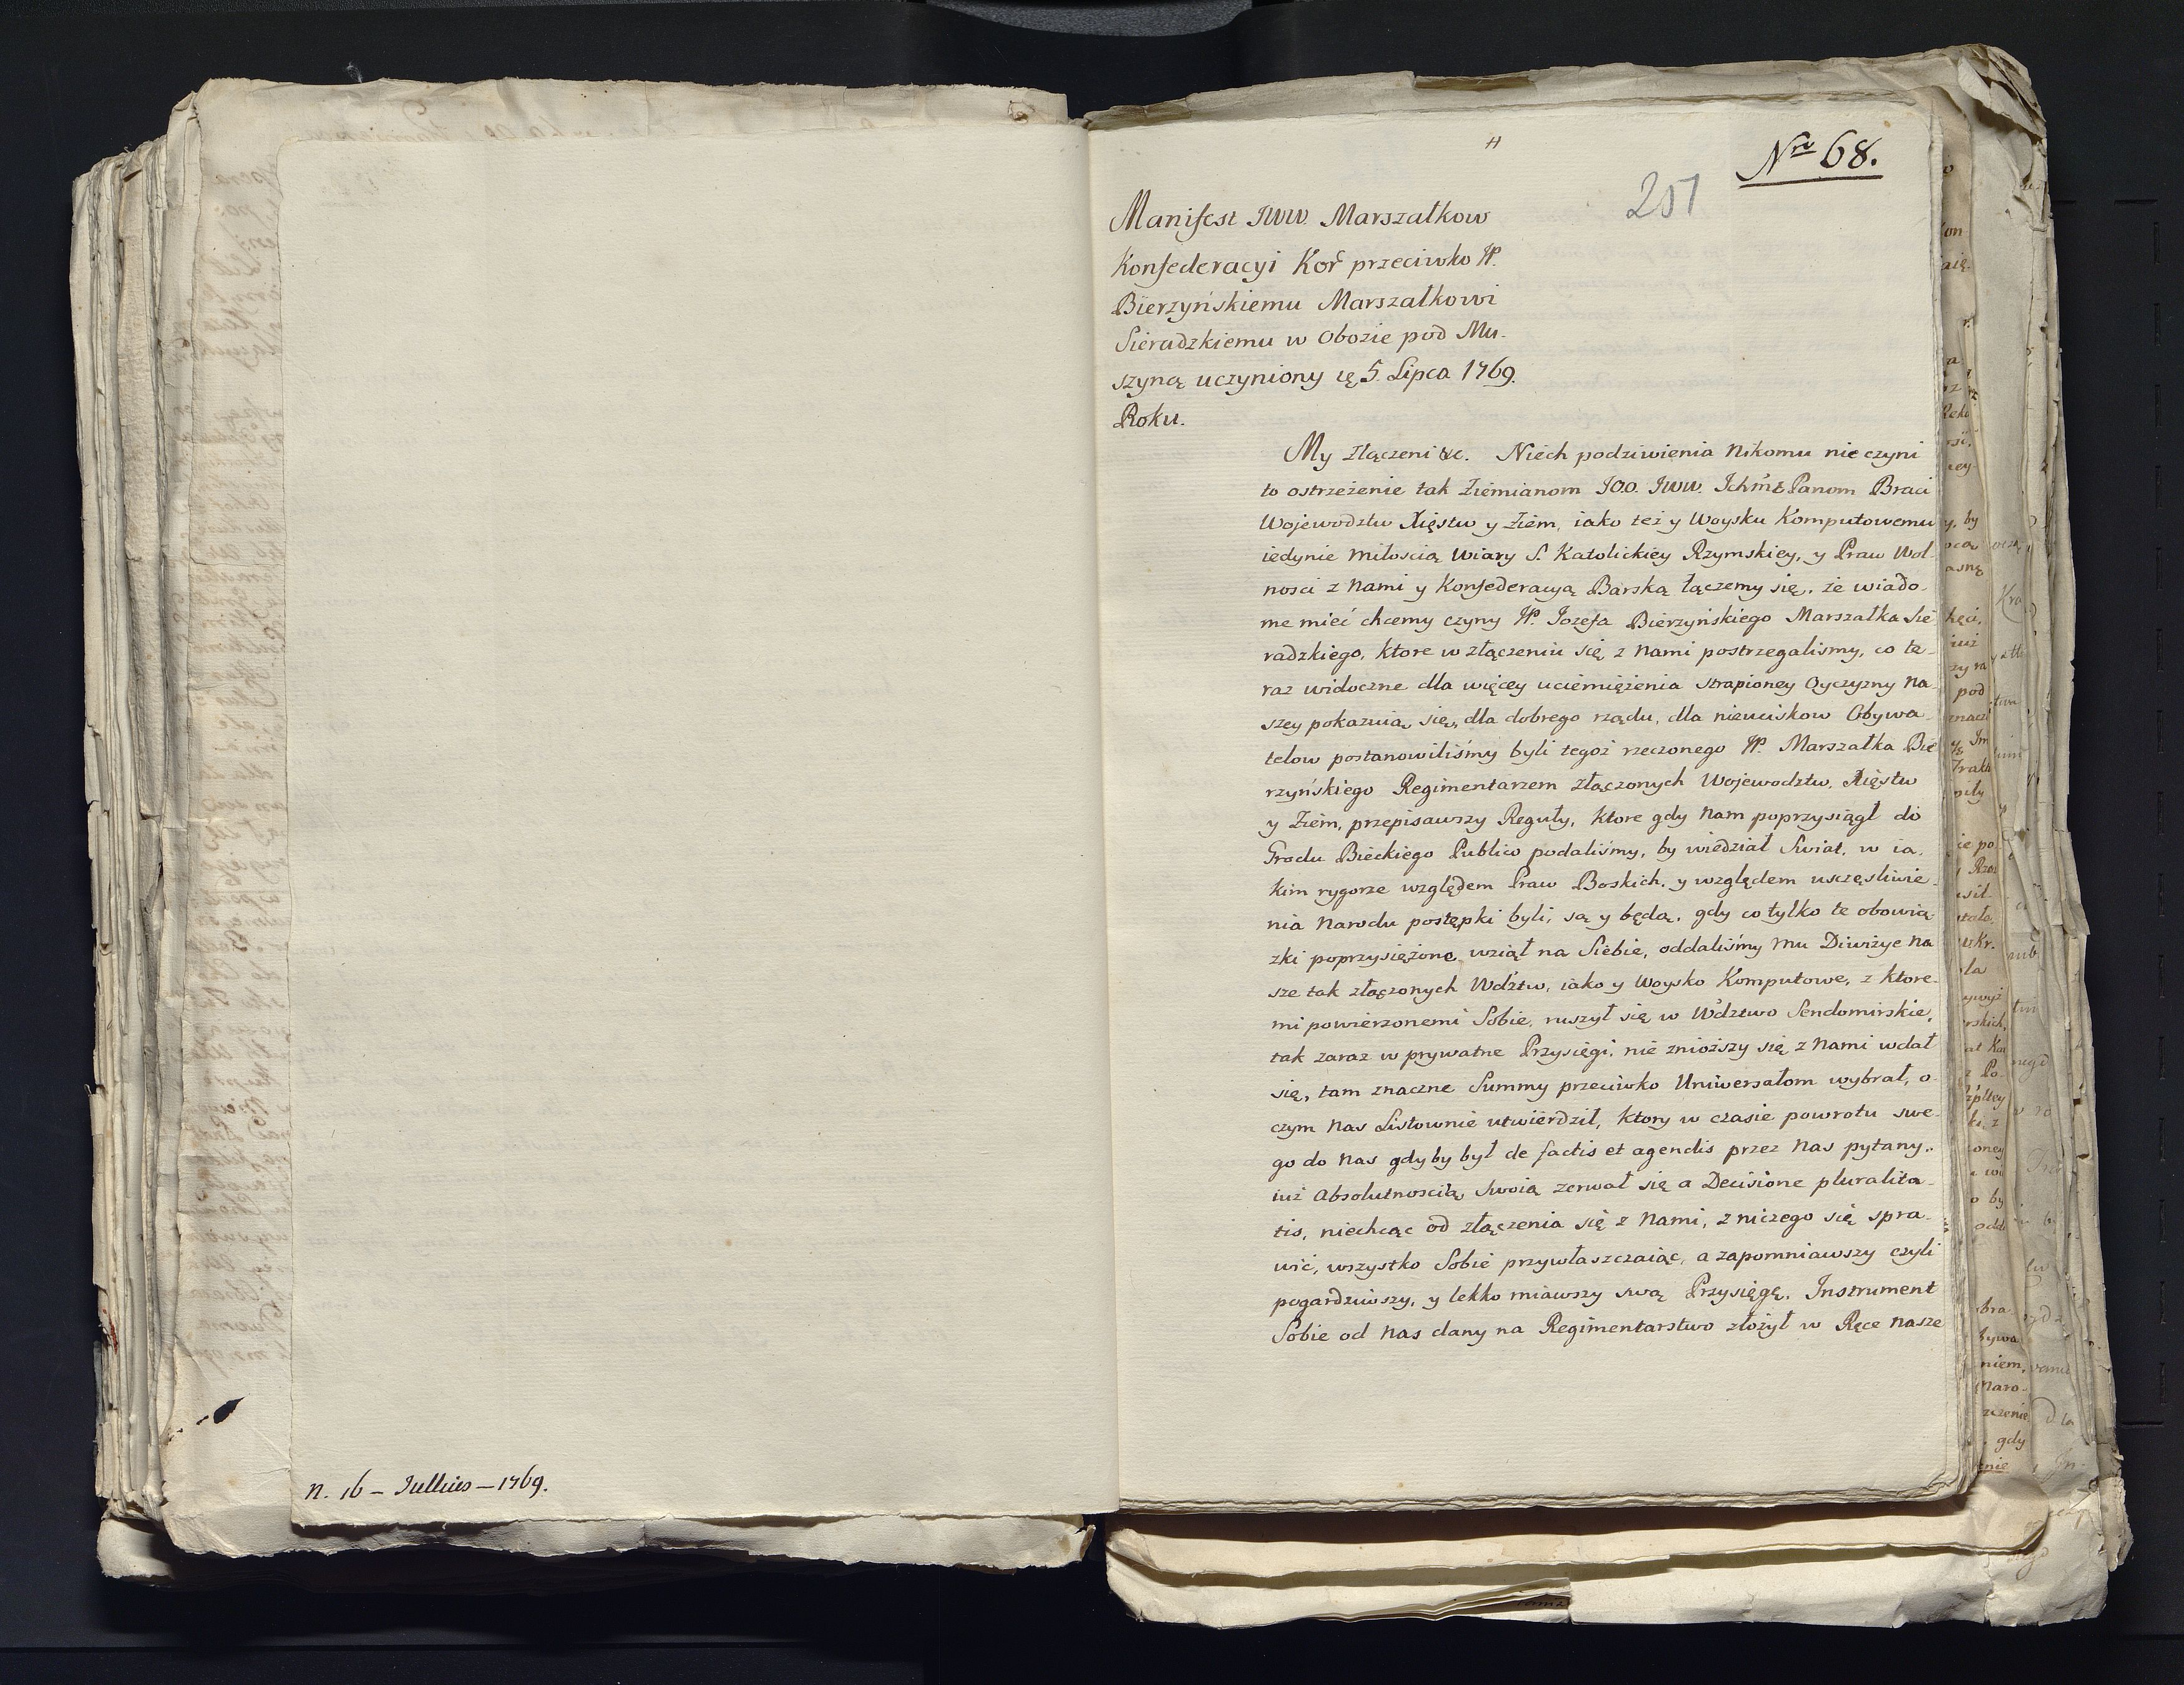 n. 16 – Jullius – 1769.
Nro 68.
251
Manifest JWW. Marszałkow
Konfederacyi Kor przeciwko W.
Bierzyńskiemu Marszałkowi
Sieradzkiemu w Obozie pod Mu-
szyną uczyniony 5. Lipca 1769.
Roku.
My złączeni &c. Niech podziwienia Nikomu nie czyni
to ostrzeżenie tak Ziemianom JOO. JWW. Ichmć Panom Braci
Wojewodztw Xięstw y Ziem, iako też y Woysku Komputowemu
iedynie miłoscią Wiary S. Katolickiey Rzymskiey, y Praw Wol-
nosci z Nami y Konfederacyą Barską łączemy się, że wiado-
me mieć chcemy czyny W. Jozefa Bierzyńskiego Marszałka Sie
radzkiego, ktore w złączeniu się z Nami postrzegalismy, co te-
raz widoczne dla więcey uciemiężenia strapioney Oyczyzny Na-
szey pokazuią się, dla dobrego rządu, dla nieuciskow Obywa-
telow postanowiliśmy byli tegoż rzeczonego W. Marszałka Bie
rzyńskiego Regimentarzem złączonych Wojewodztw, Xięstw
y Ziem, przepisawszy Reguły, ktore gdy Nam poprzysiągł do
Grodu Bieckiego Publico podaliśmy, by wiedział Swiat, w ia-
kim rygorze względem Praw Boskich, y względem uszczęsliwie-
nia Narodu postępki byli, są y będą, gdy co tylko te obowią-
zki poprzysiężone wziął na Siebie, oddaliśmy mu Diwizye Na
sze tak złączonych Wdztw, iako y Woysko Komputowe, z ktore-
mi powierzonemi Sobie, ruszył się w Wdztwo Sendomirskie,
tak zaraz w prywatne Przysięgi, nie zniozszy się z Nami wdał
się, tam znaczne Summy przeciwko Uniwersałom wybrał, o-
czym Nas Listownie utwierdził, ktory w czasie powrotu swe-
go do Nas gdyby był de factis et agendis przez Nas pytany,
iuż Absolutnoscią swoią zerwał się a Decisione pluralita-
tis, niechcąc od złączenia się z Nami, z niczego się spra-
wić, wszystko Sobie przywłaszczaiąc, a zapomniawszy czyli
pogardziwszy, y lekko miawszy swą Przysięgę, Instrument
Sobie od Nas dany na Regimentarstwo złożył w Ręce Nasze